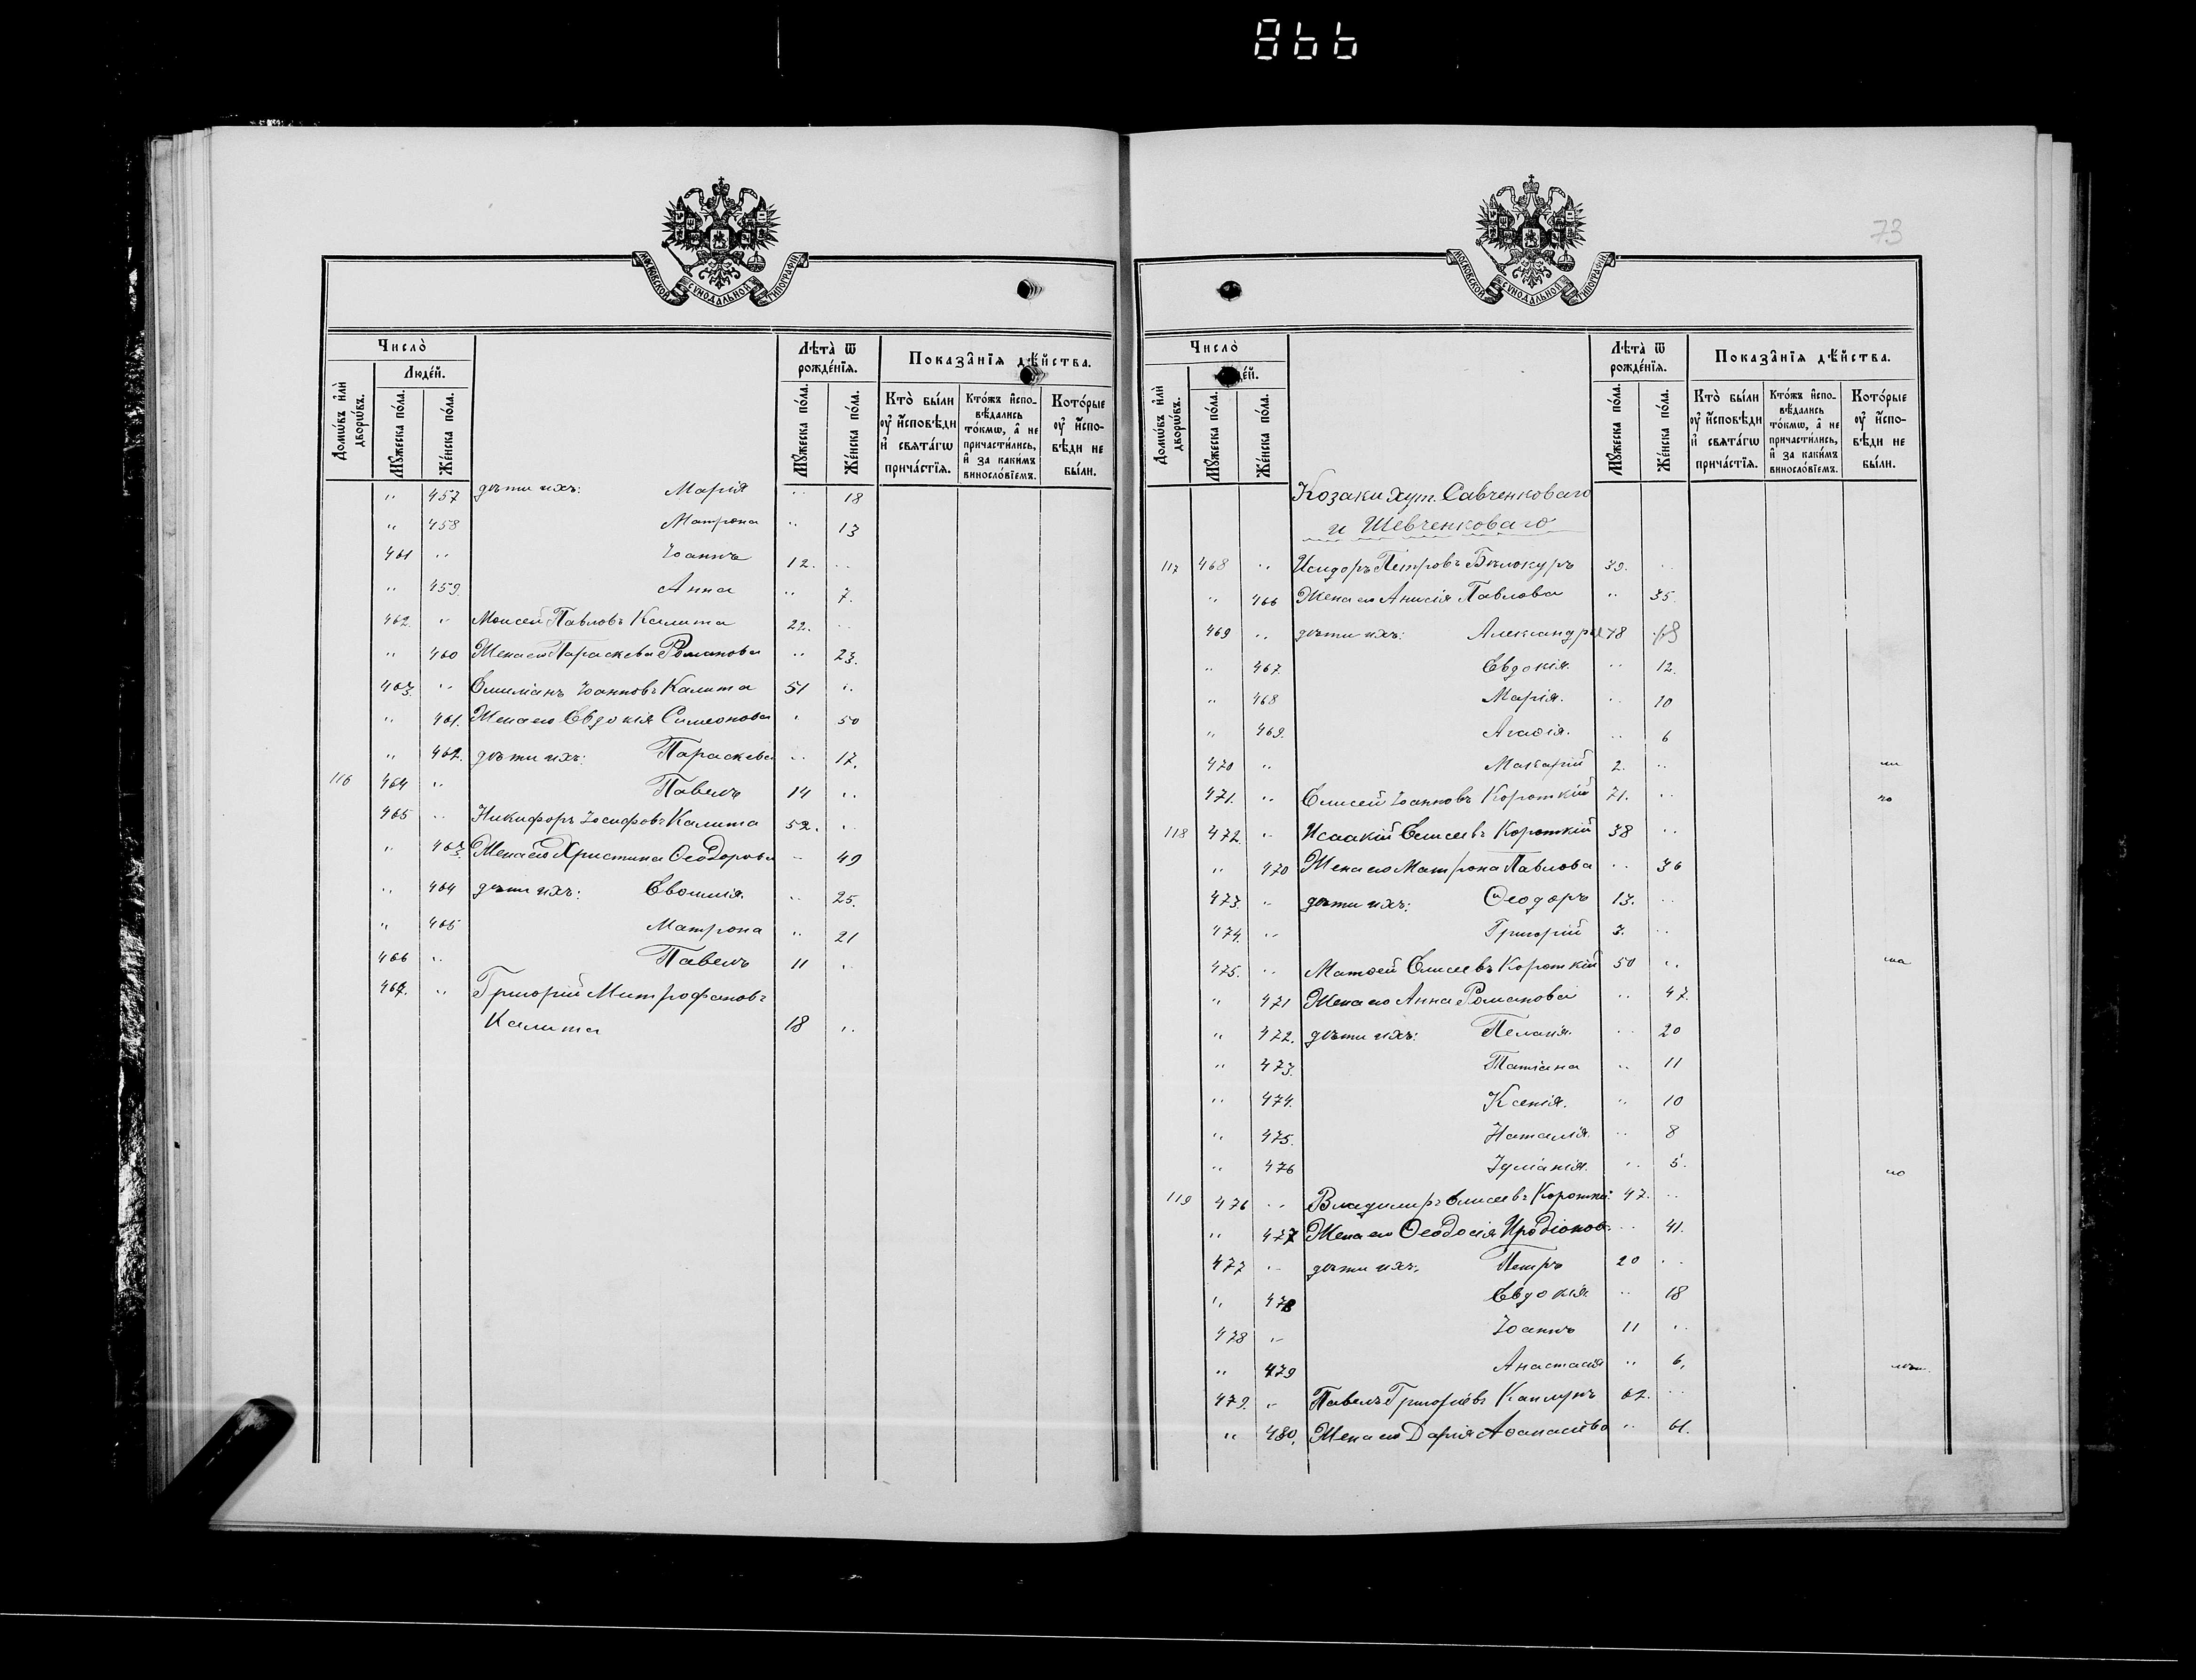 866
МОСКОВСКОЙ СѴНОДАЛЬНОЙ ТИПОГРАФІИ
Число̀
Люде́й.
Домѡ́въ и҆лѝ дворѡ́въ.
Мꙋ́жеска по́ла.
Же́нска по́ла.
Лѣ́та ѿ рожде́нїѧ.
Мꙋ́жеска по́ла.
Же́нска по́ла.
Показа̑нїѧ дѣ́йства.
Кто̀ бы́ли оу҆ и҆́сповѣди и҆ свѧта́гѡ прича́стїѧ.
Кто́жъ и҆спо-вѣ́дались то́кмѡ, а҆ не причасти́лись, и҆ за каки́мъ виносло́вїемъ.
Кото́рые оу҆ и҆́спо-вѣди не бы́ли.
" 457 дѣти ихъ: Марія " 18
" 458 Матрона " 13
461 " Іоаннъ 12. "
" 459. Анна " 7.
462. " Моисей Павловъ Калита 22. "
" 460 Жена его Параскева Романова " 23.
463. " Емиліанъ Іоанновъ Калита 51 "
" 461. Жена его Евдокія Симеонова " 50
" 462. дѣти ихъ: Параскева " 17.
116 464 " Павелъ 14 "
465 " Никифоръ Іосифовъ Калита 52. "
" 463. Жена его Христина Ѳеодорова " 49
" 464 дѣти ихъ: Евѳимія. " 25.
" 465 Матрона " 21
466 " Павелъ 11 "
467. " Григорій Митрофановъ
Калита 18 "
73
МОСКОВСКОЙ СѴНОДАЛЬНОЙ ТИПОГРАФІИ
Число̀
Люде́й.
Домѡ́въ и҆лѝ дворѡ́въ.
Мꙋ́жеска по́ла.
Же́нска по́ла.
Лѣ́та ѿ рожде́нїѧ.
Мꙋ́жеска по́ла.
Же́нска по́ла.
Показа̑нїѧ дѣ́йства.
Кто̀ бы́ли оу҆ и҆́сповѣди и҆ свѧта́гѡ прича́стїѧ.
Кто́жъ и҆спо-вѣ́дались то́кмѡ, а҆ не причасти́лись, и҆ за каки́мъ виносло́вїемъ.
Кото́рые оу҆ и҆́спо-вѣди не бы́ли.
Козаки хут. Савченковаго
и Шевченковаго
117 468 " Исидоръ Петровъ Бѣлокуръ 39. "
" 466 Жена его Анисія Павлова " 35.
469 " дѣти ихъ: Александръ 18
" 467. Евдокія. " 12.
" 468 Марія. " 10
" 469. Агафія. " 6
470 " Макарій 2. "
471. " Елисей Іоанновъ Короткій 71. "
118 472. " Исаакій Елисеевъ Короткій 38 "
" 470 Жена его Матрона Павлова " 36
473. " дѣти ихъ: Ѳеодоръ 13. "
474. " Григорій 3. "
475. " Матѳей Елисеевъ Короткій 50 "
" 471 Жена его Анна Романова " 47.
" 472. дѣти ихъ: Пелагія. " 20
" 473. Татіана " 11
" 474. Ксенія. " 10
" 475. Наталія. " 8
" 476 Іуліанія. " 5.
119 476 " Владимиръ Елисеевъ Коротк. 47. "
" 477 Жена его Ѳеодосія Иродіонов. " 41.
477 " дѣти ихъ: Петръ 20 "
" 478 Евдокія " 18
478 " Іоаннъ 11 "
" 479 Анастасія " 6,
479. " Павелъ Григоріевъ Каплунъ 62. "
" 480. Жена его Дарія Аѳанасіева " 61.